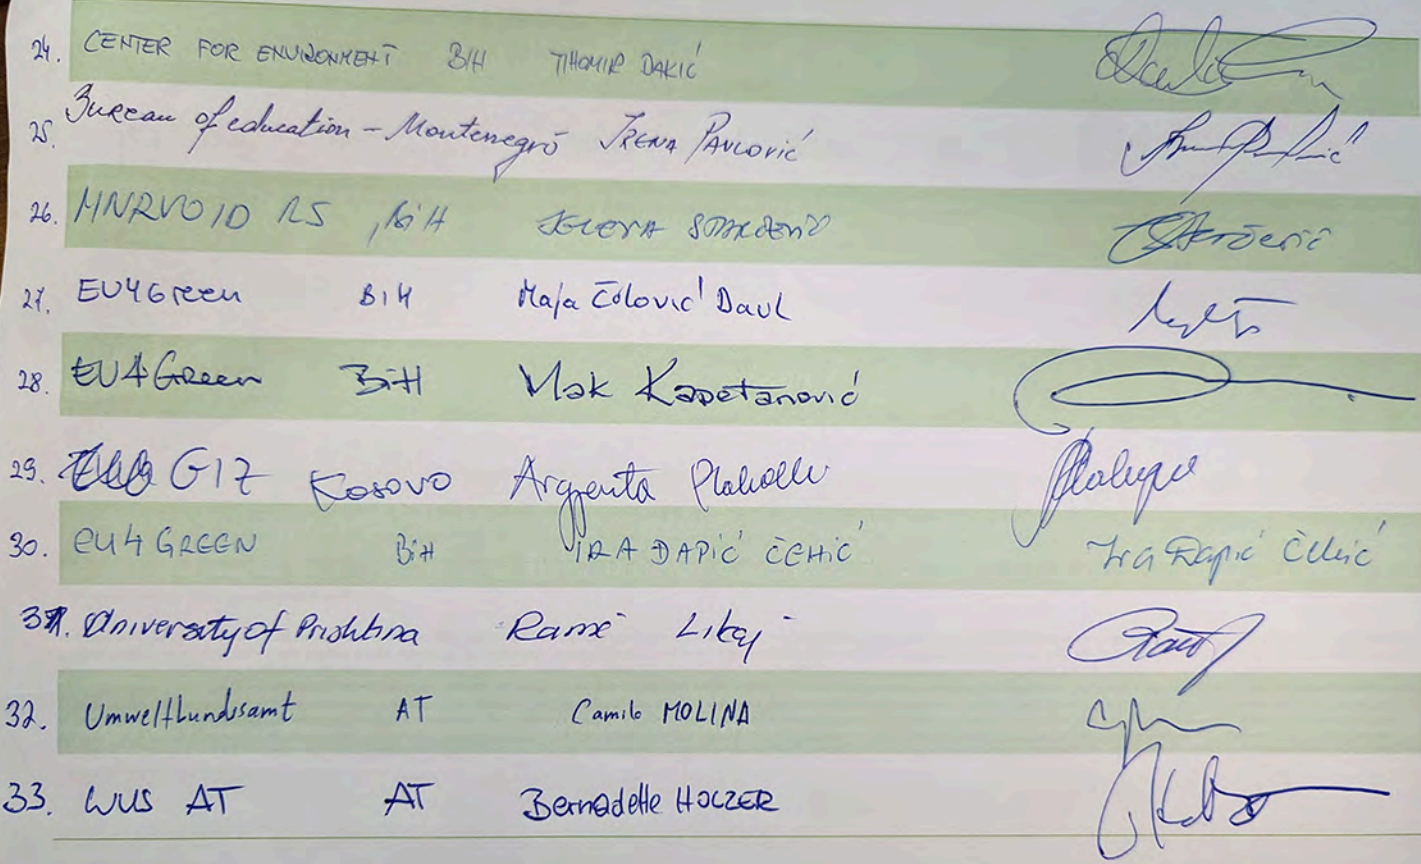 24. CENTER FOR ENVIRONMENT BIH TIHOMIR DAKIĆ
25. Bureau of education - Montenegro IRENA PAVLOVIĆ
26. MNRVOID RS, BiH JELENA STARČEVIĆ
27. EU4Green BiH Maja Čolović Daul
28. EU4Green BiH Mak Kapetanović
29. GIZ Kosovo Argjenta
30. EU4 GREEN BiH IRA ĐAPIĆ ČEHIĆ Ira Đapić Čehić
31. University of Prishtina Ramë Likaj
32. Umweltbundesamt AT Camilo MOLINA
33. WUS AT AT Bernadette HOLZER